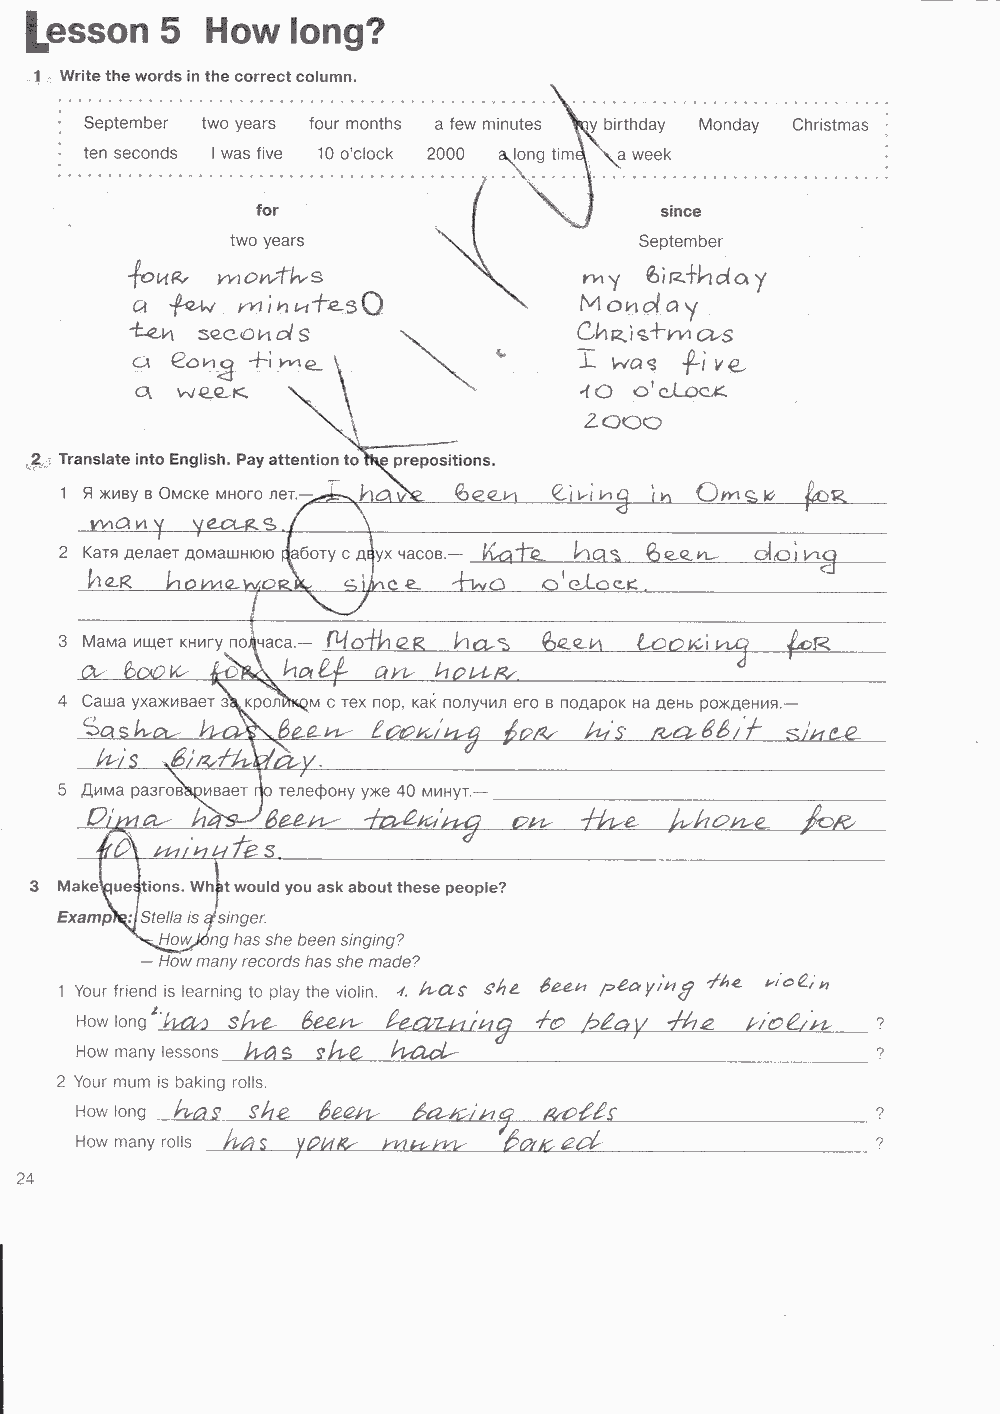 Lesson 5 How long?
1 Write the words in the correct column.
September two years four months a few minutes my birthday Monday Christmas
ten seconds I was five 10 o'clock 2000 a long time a week
for since
two years September
four months my birthday
a few minutes Monday
ten seconds Christmas
a long time I was five
a week 10 o'clock
2000
2 Translate into English. Pay attention to the prepositions.
1 Я живу в Омске много лет.— I have been living in Omsk for
many years.
2 Катя делает домашнюю работу с двух часов.— Kate has been doing
her homework since two o'clock.
3 Мама ищет книгу полчаса.— Mother has been looking for
a book for half an hour.
4 Саша ухаживает за кроликом с тех пор, как получил его в подарок на день рождения.—
Sasha has been looking for his rabbit since
his birthday.
5 Дима разговаривает по телефону уже 40 минут.—
Dima has been talking on the phone for
40 minutes.
3 Make questions. What would you ask about these people?
Example: Stella is a singer.
— How long has she been singing?
— How many records has she made?
1 Your friend is learning to play the violin. 1. has she been playing the violin
How long 2. has she been learning to play the violin ?
How many lessons has she had ?
2 Your mum is baking rolls.
How long has she been baking rolls ?
How many rolls has your mum baked ?
24